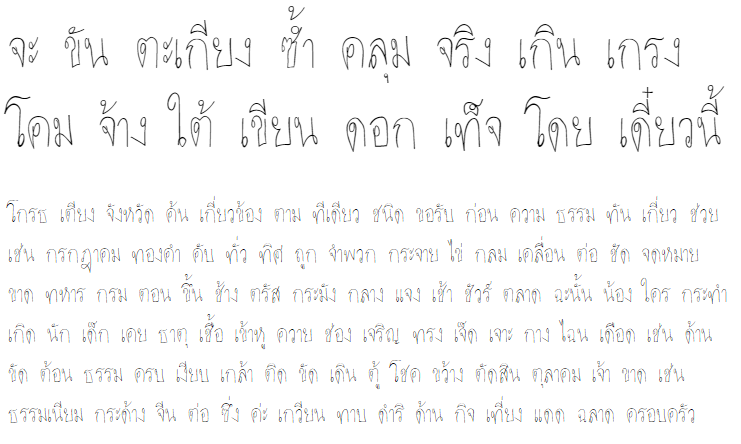 จะ ขัน ตะเกียง ซ้ำ คลุม จริง เกิน เกรง
โคม จ้าง ใต้ เขียน ดอก เท็จ โดย เดี๋ยวนี้
โกรธ เตียง จังหวัด ค้น เกี่ยวข้อง ตาม ทีเดียว ชนิด ขอรับ ก่อน ความ ธรรม ทัน เกี่ยว ช่วย
เช่น กรกฎาคม ทองคำ คับ ทั่ว ทิศ ถูก จำพวก กระจาย ไข่ กลม เคลื่อน ต่อ ชัด จดหมาย
ขาด ทหาร กรม ตอน ขึ้น ช้าง ตรัส กระมัง กลาง แจง เช้า ชัวร์ ตลาด ฉะนั้น น้อง ใคร กระทำ
เกิด นัก เด็ก เคย ธาตุ เชื้อ เช้าหู ควาย ช่อง เจริญ ทรง เจ็ด เจาะ กาง ไฉน เดือด เช่น ด้าน
ขัด ต้อน ธรรม ครบ เงียบ เกล้า ติด ขัด เดิน ตู้ โชค ขว้าง ตัดสิน ตุลาคม เจ้า ขาด เช่น
ธรรมเนียม กระด้าง จีน ต่อ ซึ่ง ค่ะ เกวียน ทาบ ดำริ ด้าน กิจ เที่ยง แดด ฉลาด ครอบครัว